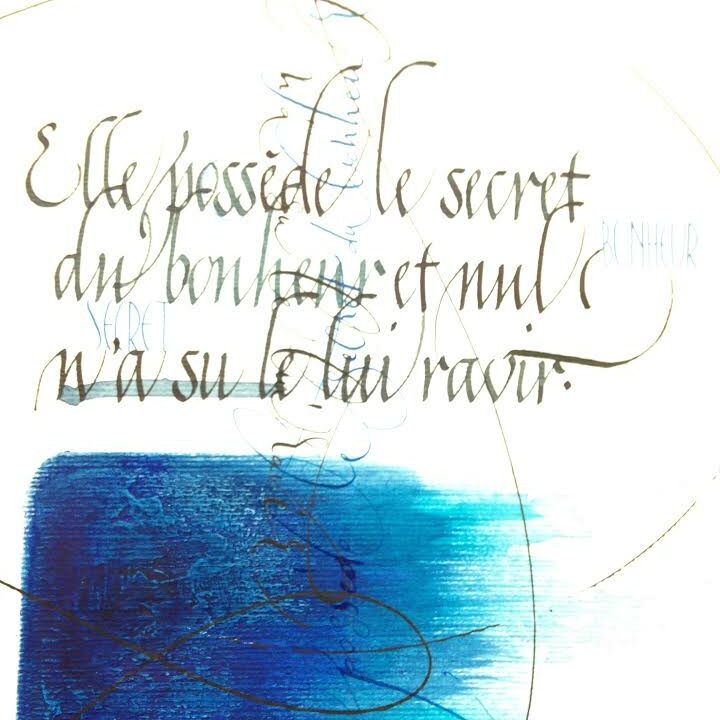 Elle possède le secret
du bonheur et nul
n'a su le lui ravir.
BONHEUR
SECRET